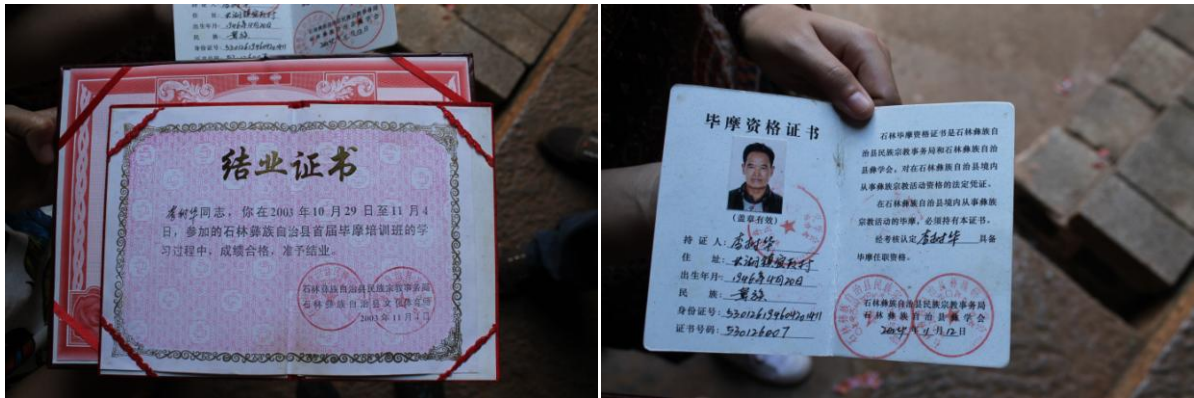 结业证书
李树华同志,你在2003年10月29日至11月4
日,参加的石林彝族自治县首届毕摩培训班的学
习过程中,成绩合格,准予结业。
石林彝族自治县民族宗教事务局
石林彝族自治县文化体育局
2003年11月4日
出生年月:1946年4月20日
民 族:彝族
身份证号:
毕摩资格证书
(盖章有效)
持 证 人:李树华
住 址:长湖镇
出生年月:1946年4月20日
民 族:彝族
身份证号:
证书号码:530126007
石林毕摩资格证书是石林彝族自
治县民族宗教事务局和石林彝族自治
县彝学会,对在石林彝族自治县境内
从事彝族宗教活动资格的法定凭证。
在石林彝族自治县境内从事彝族
宗教活动的毕摩,必须持有本证书。
经考核认定李树华具备
毕摩任职资格。
石林彝族自治县民族宗教事务局
石林彝族自治县彝学会
年 月12日